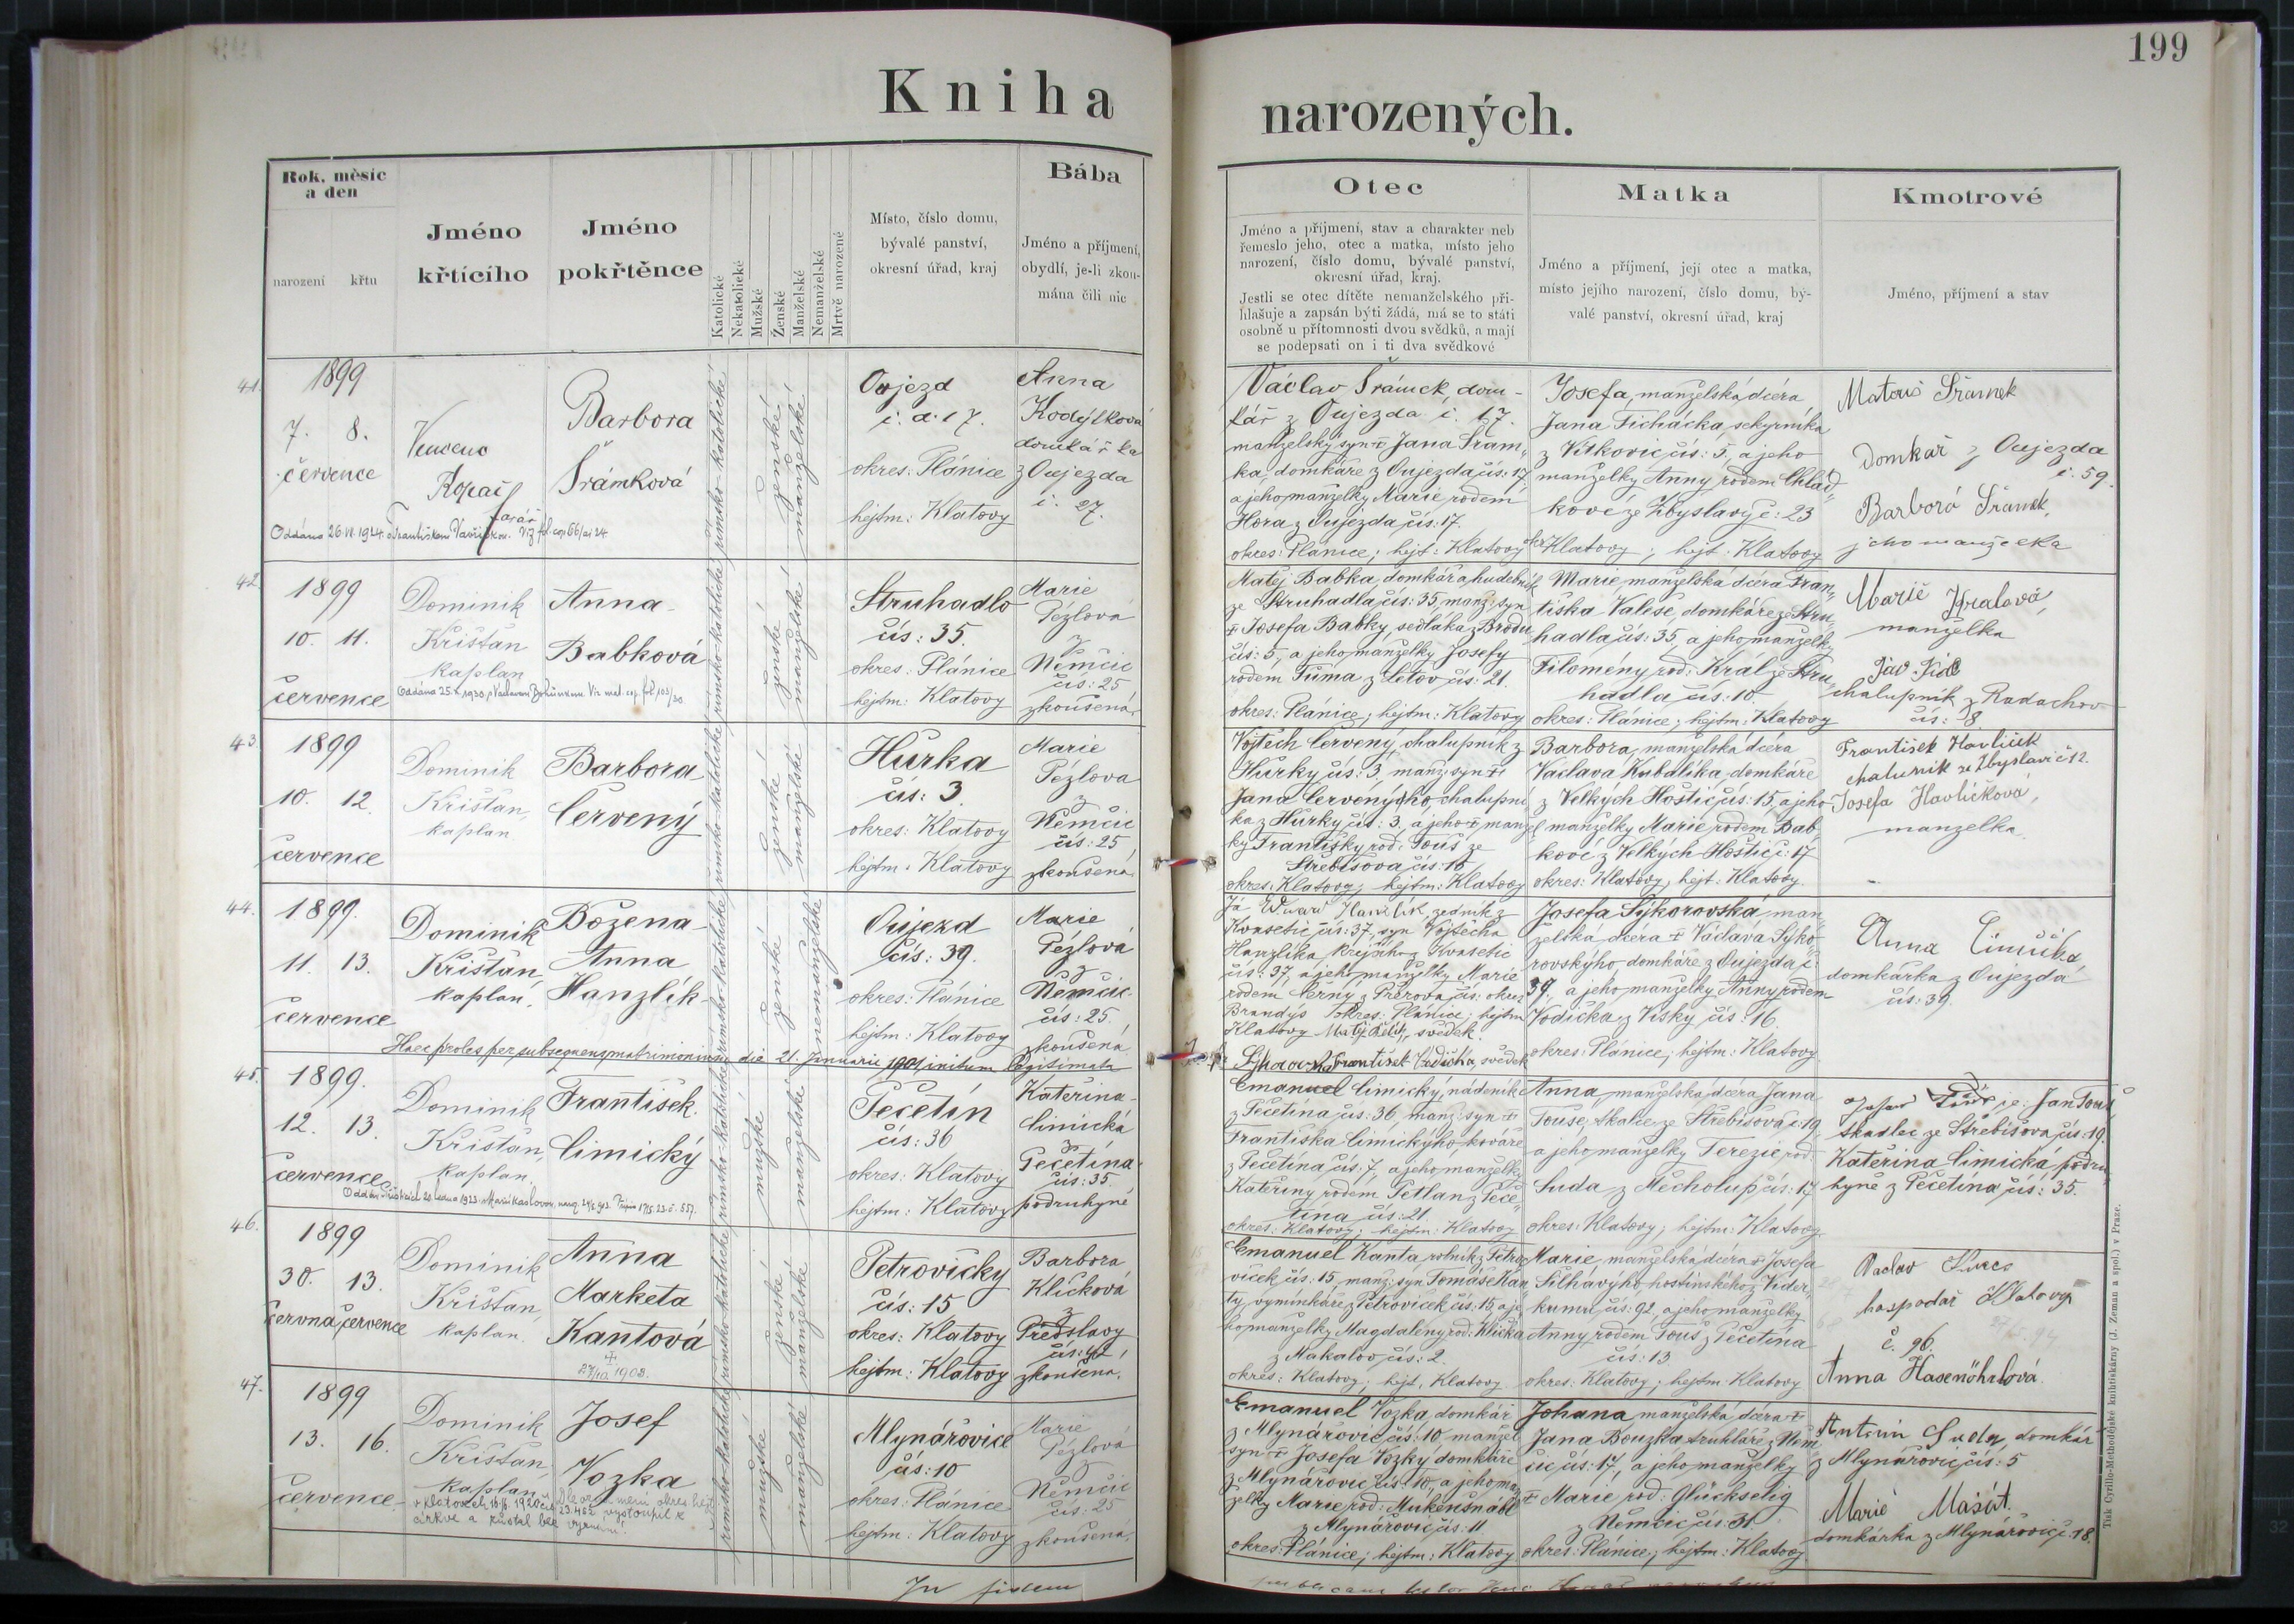 199
Kniha
narozených.
Rok, měsíc
a den
narození křtu
Jméno
křtícího
Jméno
pokřtěnce
Katolické
Nekatolické
Mužské
Ženské
Manželské
Nemanželské
Mrtvě narozené
Místo, číslo domu,
bývalé panství,
okresní úřad, kraj
Bába
Jméno a příjmení,
obydlí, je-li zkou-
mána čili nic
Otec
Jméno a přijmení, stav a charakter neb
řemeslo jeho, otec a matka, místo jeho
narození, číslo domu, bývalé panství,
okresní úřad, kraj.
Jestli se otec dítěte nemanželského při-
hlašuje a zapsán býti žádá, má se to státi
osobně u přítomnosti dvou svědků, a mají
se podepsati on i ti dva svědkové
Matka
Jméno a příjmení, její otec a matka,
místo jejího narození, číslo domu, bý-
valé panství, okresní úřad, kraj
Kmotrové
Jméno, příjmení a stav
41.
1899
7. 8.
července
Kopač
farář
Barbora
Šrámková
římsko-katolické
ženské
manželské
Oujezd
17.
okres: Plánice
hejtm: Klatovy
Anna
Kodýlková
domkářka
z Oujezda
č. 27.
Václav Šrámek, dom-
kář z Oujezda č. 17.
manželský syn † Jana Šrám-
ka, domkáře z Oujezda čís: 17
a jeho manželky Marie rodem
Hora z Oujezda čís: 17.
okres: Plánice; hejt: Klatovy
Josefa, manželská dcéra
Jana Ticháčka, sekyrníka
z Vítkovic čís: 5, a jeho
manželky Anny rodem Chlád-
kové ze Zbyslavy č: 23
okr: Klatovy; hejt: Klatovy
Matouš Šrámek
Domkář z Oujezda
č. 59.
Barbora Šrámek,
jeho manželka
42.
1899
10. 11.
července
Dominik
Krištan
kaplan
Anna
Babková
římsko-katolické
ženské
manželské
Struhadlo
čís: 35.
okres: Plánice
hejtm: Klatovy
Marie
Pézlová
z
Němčic
čís: 25
zkoušená
Matěj Babka, domkář a hudebník
ze Struhadla čís: 35, manž: syn
† Josefa Babky, sedláka z Brodu
čís: 5, a jeho manželky Josefy
rodem Tůma z Letov čís: 21.
okres: Plánice; hejtm: Klatovy
Marie manželská dcéra Fran-
tiška Valese, domkáře ze Stru-
hadla čís: 35, a jeho manželky
Filomény rod: Král ze Stru-
hadla čís: 10.
okres: Plánice; hejtm: Klatovy
Marie Králová,
manželka
chalupník z Radochov
čís: 18
43.
1899
10. 12.
července
Dominik
Krištan,
kaplan
Barbora
Červený
římsko-katolické
ženské
manželské
Hůrka
čís: 3
okres: Klatovy
hejtm: Klatovy
Marie
Pézlova
z
Němčic
čís: 25
zkoušená
Vojtěch Červený, chalupník z
Hůrky čís: 3, manž: syn †
Jana Červenýho, chalupní-
ka z Hůrky čís: 3, a jeho † manžel-
ky Františky rod: Touš ze
Střebišova čís: 16
okres: Klatovy; hejtm: Klatovy
Barbora, manželská dcéra
Václava Kubalíka, domkáře
z Velkých Hoštic čís: 15, a jeho
manželky Marie rodem Bab-
kové z Velkých Hoštic č: 17
okres: Klatovy, hejt: Klatovy
František Havlíček
chalupník ze Zbyslavi č 12.
Josefa Havlíčková,
manželka
44.
1899.
11. 13.
července
Dominik
Krištan,
kaplan.
Božena
Anna
Hanzlík
římsko-katolické
ženské
nemanželské
Oujezd
čís: 39.
okres: Plánice
hejtm: Klatovy
Marie
Pézlová
z
Němčic
čís: 25.
zkoušená
Haec proles per subsequens matrimonium die 21. Januarii 1901 initum legitimata
Já Eduard Hanzlík, zedník z
Kvasetic čís: 37, syn Vojtěcha
Hanzlíka, krejčího z Kvasetic
čís: 37, a jeho manželky Marie
rodem Černý z Přerova čís: okres
Brandýs okres: Plánice; hejtm
Klatovy Matěj svědek.
František Vodička, svědek
Josefa Sýkorovská, man-
želská dcéra † Václava Sýko-
rovskýho, domkáře z Oujezda č:
39, a jeho manželky Anny rodem
Vodička z Vísky čís: 16.
okres: Plánice; hejtm: Klatovy
Anna
domkářka z Oujezda
čís: 39
45.
1899.
12. 13.
července
Dominik
Krištan,
kaplan.
František
Čimický
římsko-katolické
mužské
manželské
Pečetín
čís: 36
okres: Klatovy
hejtm: Klatovy
Kateřina
Čimická
z
Pečetína
čís: 35.
podruhyně
Emanuel Čimický, nádeník
z Pečetína čís: 36, manž: syn †
Františka Čimickýho, kováře
z Pečetína čís: 7, a jeho manželky
Kateřiny rodem Petlan z Peče-
tína čís: 21.
okres: Klatovy; hejtm: Klatovy
Anna, manželská dcéra Jana
Touše, tkalce ze Střebišova č: 19,
a jeho manželky Terezie rod:
Suda z Měcholup čís: 17
okres: Klatovy; hejtm: Klatovy
Jan Touš
tkadlec ze Střebišova čís: 19.
Kateřina Čimická, podru-
hyně z Pečetína čís: 35.
46.
1899
30. 13.
června července
Dominik
Krištan,
kaplan.
Anna
Markéta
Kantová
†
1908.
římsko-katolické
ženské
manželské
Petrovičky
čís: 15
okres: Klatovy
hejtm: Klatovy
Barbora
Klíčková
z
Předslavy
zkoušená.
Emanuel Kanta, rolník z Petro-
viček čís: 15, manž: syn Tomáše Kan-
ty, výminkáře z Petroviček čís: 15, a je-
ho manželky Magdaleny rod: Klíčka
z Makalov čís: 2.
okres: Klatovy; hejt. Klatovy
Marie, manželská dcéra † Josefa
Šilhavýho, hostinského z Vider-
kumu, čís: 92, a jeho manželky
Anny rodem Touš z Pečetína
čís: 13
okres: Klatovy; hejtm: Klatovy
Václav
hospodář Klatovy
č. 96.
Anna Hasenöhrlová.
47.
1899
13. 16.
července
Dominik
Krištan,
kaplan
Josef
Vozka
římsko-katolické
mužské
manželské
Mlynářovice
čís: 10
okres: Plánice
hejtm: Klatovy
Marie
Pézlová
z
Němčic
čís: 25
zkoušená
Emanuel Vozka, domkář
z Mlynářovic čís: 10, manžel
syn † Josefa Vozky, domkáře
z Mlynářovic čís: 10, a jeho man-
želky Marie rod:
z Mlynářovic čís: 11
okres: Plánice; hejtm: Klatovy
Johana, manželská dcéra †
Jana Bouzka, truhláře z Něm-
čic čís: 17, a jeho manželky
† Marie rod: Glückselig
z Němčic čís: 31.
okres: Plánice; hejtm: Klatovy
Antonín Suda, domkář
z Mlynářovic čís: 5
Marie Mašát.
domkářka z Mlynářovic č: 18.
In fidem
Tisk Cyrillo-Methodějské knihtiskárny (J. Zeman a spol.) v Praze.